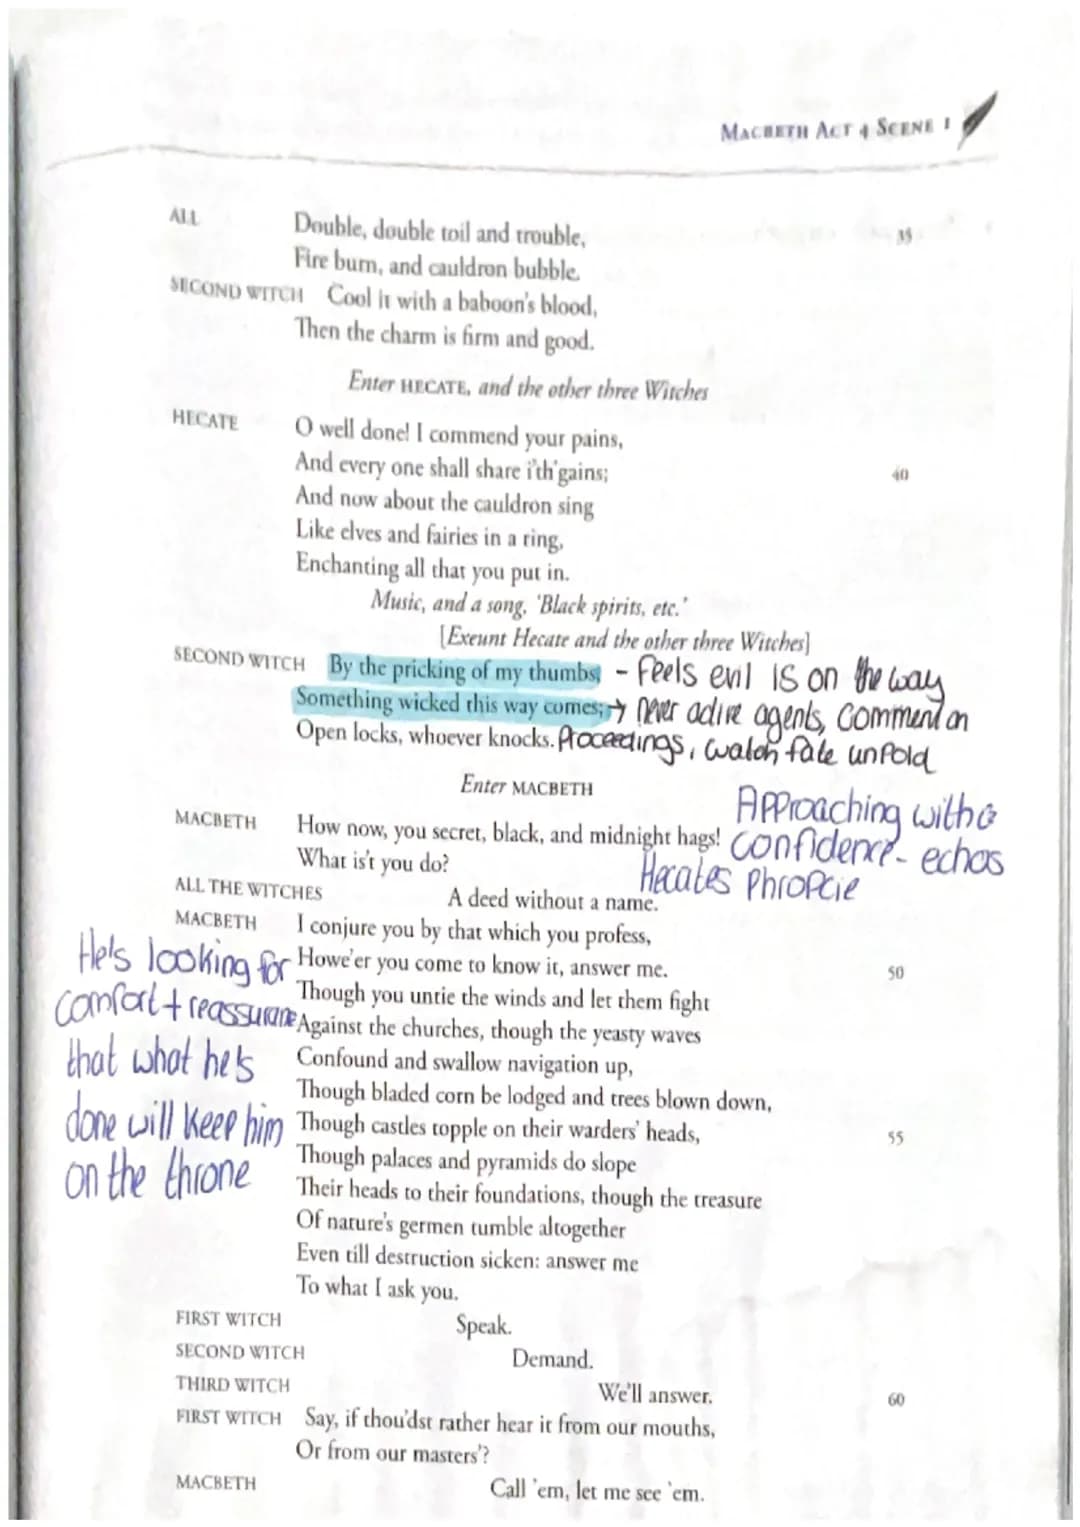 MACBETH ACT 4 SCENE 1
ALL Double, double toil and trouble, 35
Fire burn, and cauldron bubble.
SECOND WITCH Cool it with a baboon's blood,
Then the charm is firm and good.
Enter HECATE, and the other three Witches
HECATE O well done! I commend your pains,
And every one shall share i'th'gains; 40
And now about the cauldron sing
Like elves and fairies in a ring,
Enchanting all that you put in.
Music, and a song, 'Black spirits, etc.'
[Exeunt Hecate and the other three Witches]
SECOND WITCH By the pricking of my thumbs, - feels evil is on the way
Something wicked this way comes; → never active agents, comment on
Open locks, whoever knocks. Proceedings, watch fate unfold
Enter MACBETH
Approaching with
MACBETH How now, you secret, black, and midnight hags! confidence - echos
What is't you do? Hecates Phropcie
ALL THE WITCHES A deed without a name.
MACBETH I conjure you by that which you profess,
He's looking for Howe'er you come to know it, answer me. 50
comfort + reassurance Though you untie the winds and let them fight
Against the churches, though the yeasty waves
that what he's Confound and swallow navigation up,
Though bladed corn be lodged and trees blown down,
done will keep him Though castles topple on their warders' heads, 55
on the throne Though palaces and pyramids do slope
Their heads to their foundations, though the treasure
Of nature's germen tumble altogether
Even till destruction sicken: answer me
To what I ask you.
FIRST WITCH Speak.
SECOND WITCH Demand.
THIRD WITCH We'll answer. 60
FIRST WITCH Say, if thou'dst rather hear it from our mouths,
Or from our masters'?
MACBETH Call 'em, let me see 'em.